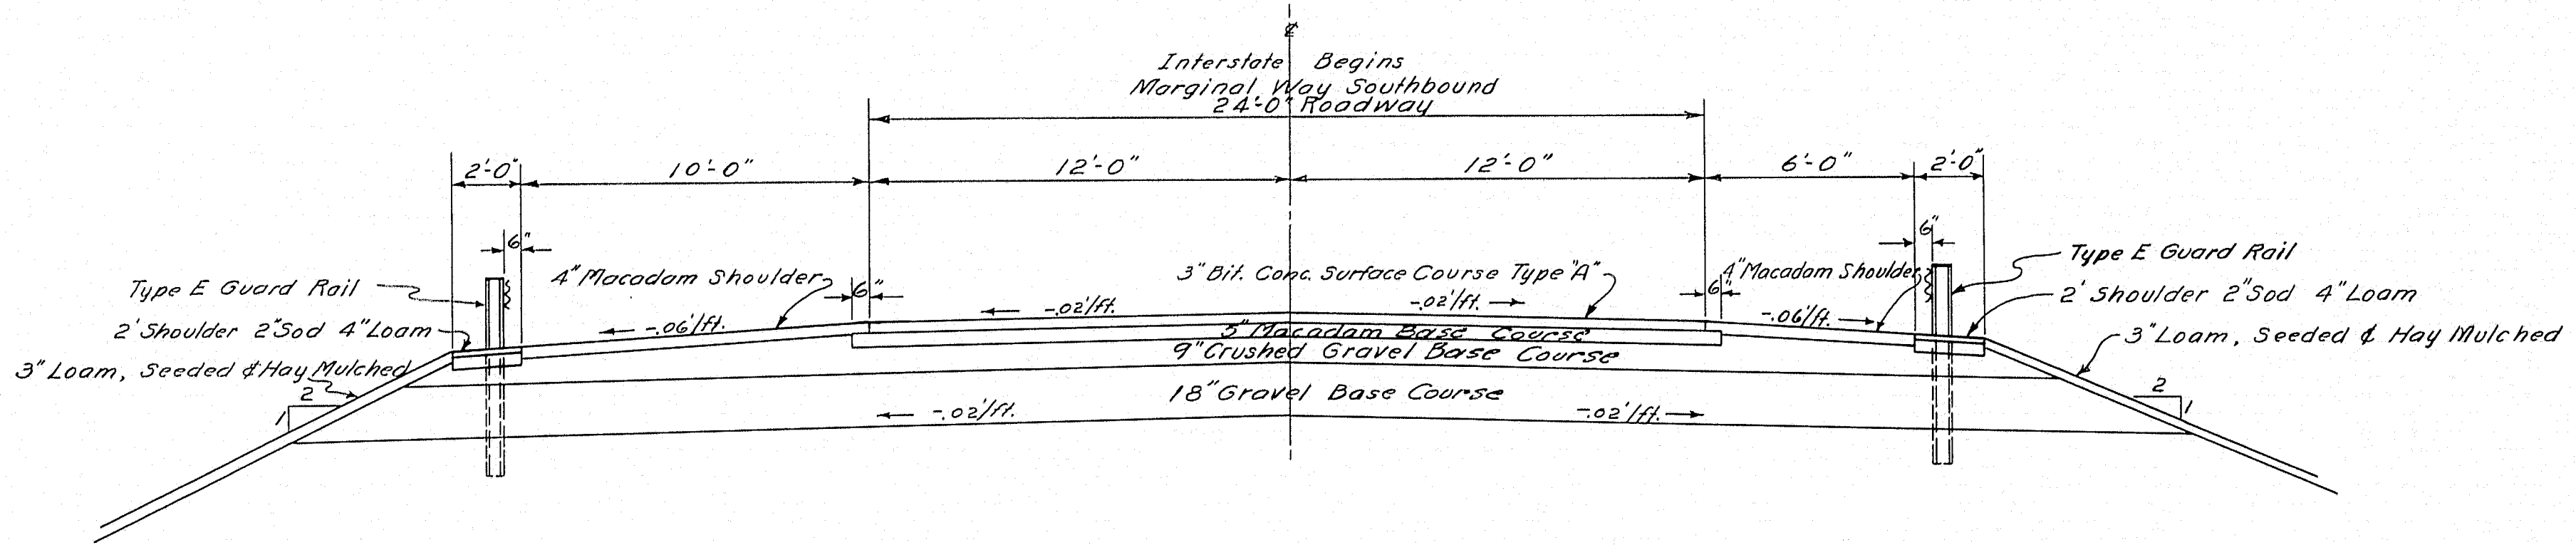 ℄
Interstate Begins
Marginal Way Southbound
24'-0" Roadway
2'-0" 10'-0" 12'-0" 12'-0" 6'-0" 2'-0"
6" 6"
Type E Guard Rail
4" Macadam Shoulder
6"
3" Bit. Conc. Surface Course Type "A"
6"
4" Macadam Shoulder
Type E Guard Rail
2' Shoulder 2" Sod 4" Loam
-.06'/ft.
-.02'/ft.
-.02'/ft.
-.06'/ft.
2' Shoulder 2" Sod 4" Loam
5" Macadam Base Course
9" Crushed Gravel Base Course
3" Loam, Seeded & Hay Mulched
3" Loam, Seeded & Hay Mulched
2
1
18" Gravel Base Course
2
1
-.02'/ft.
-.02'/ft.